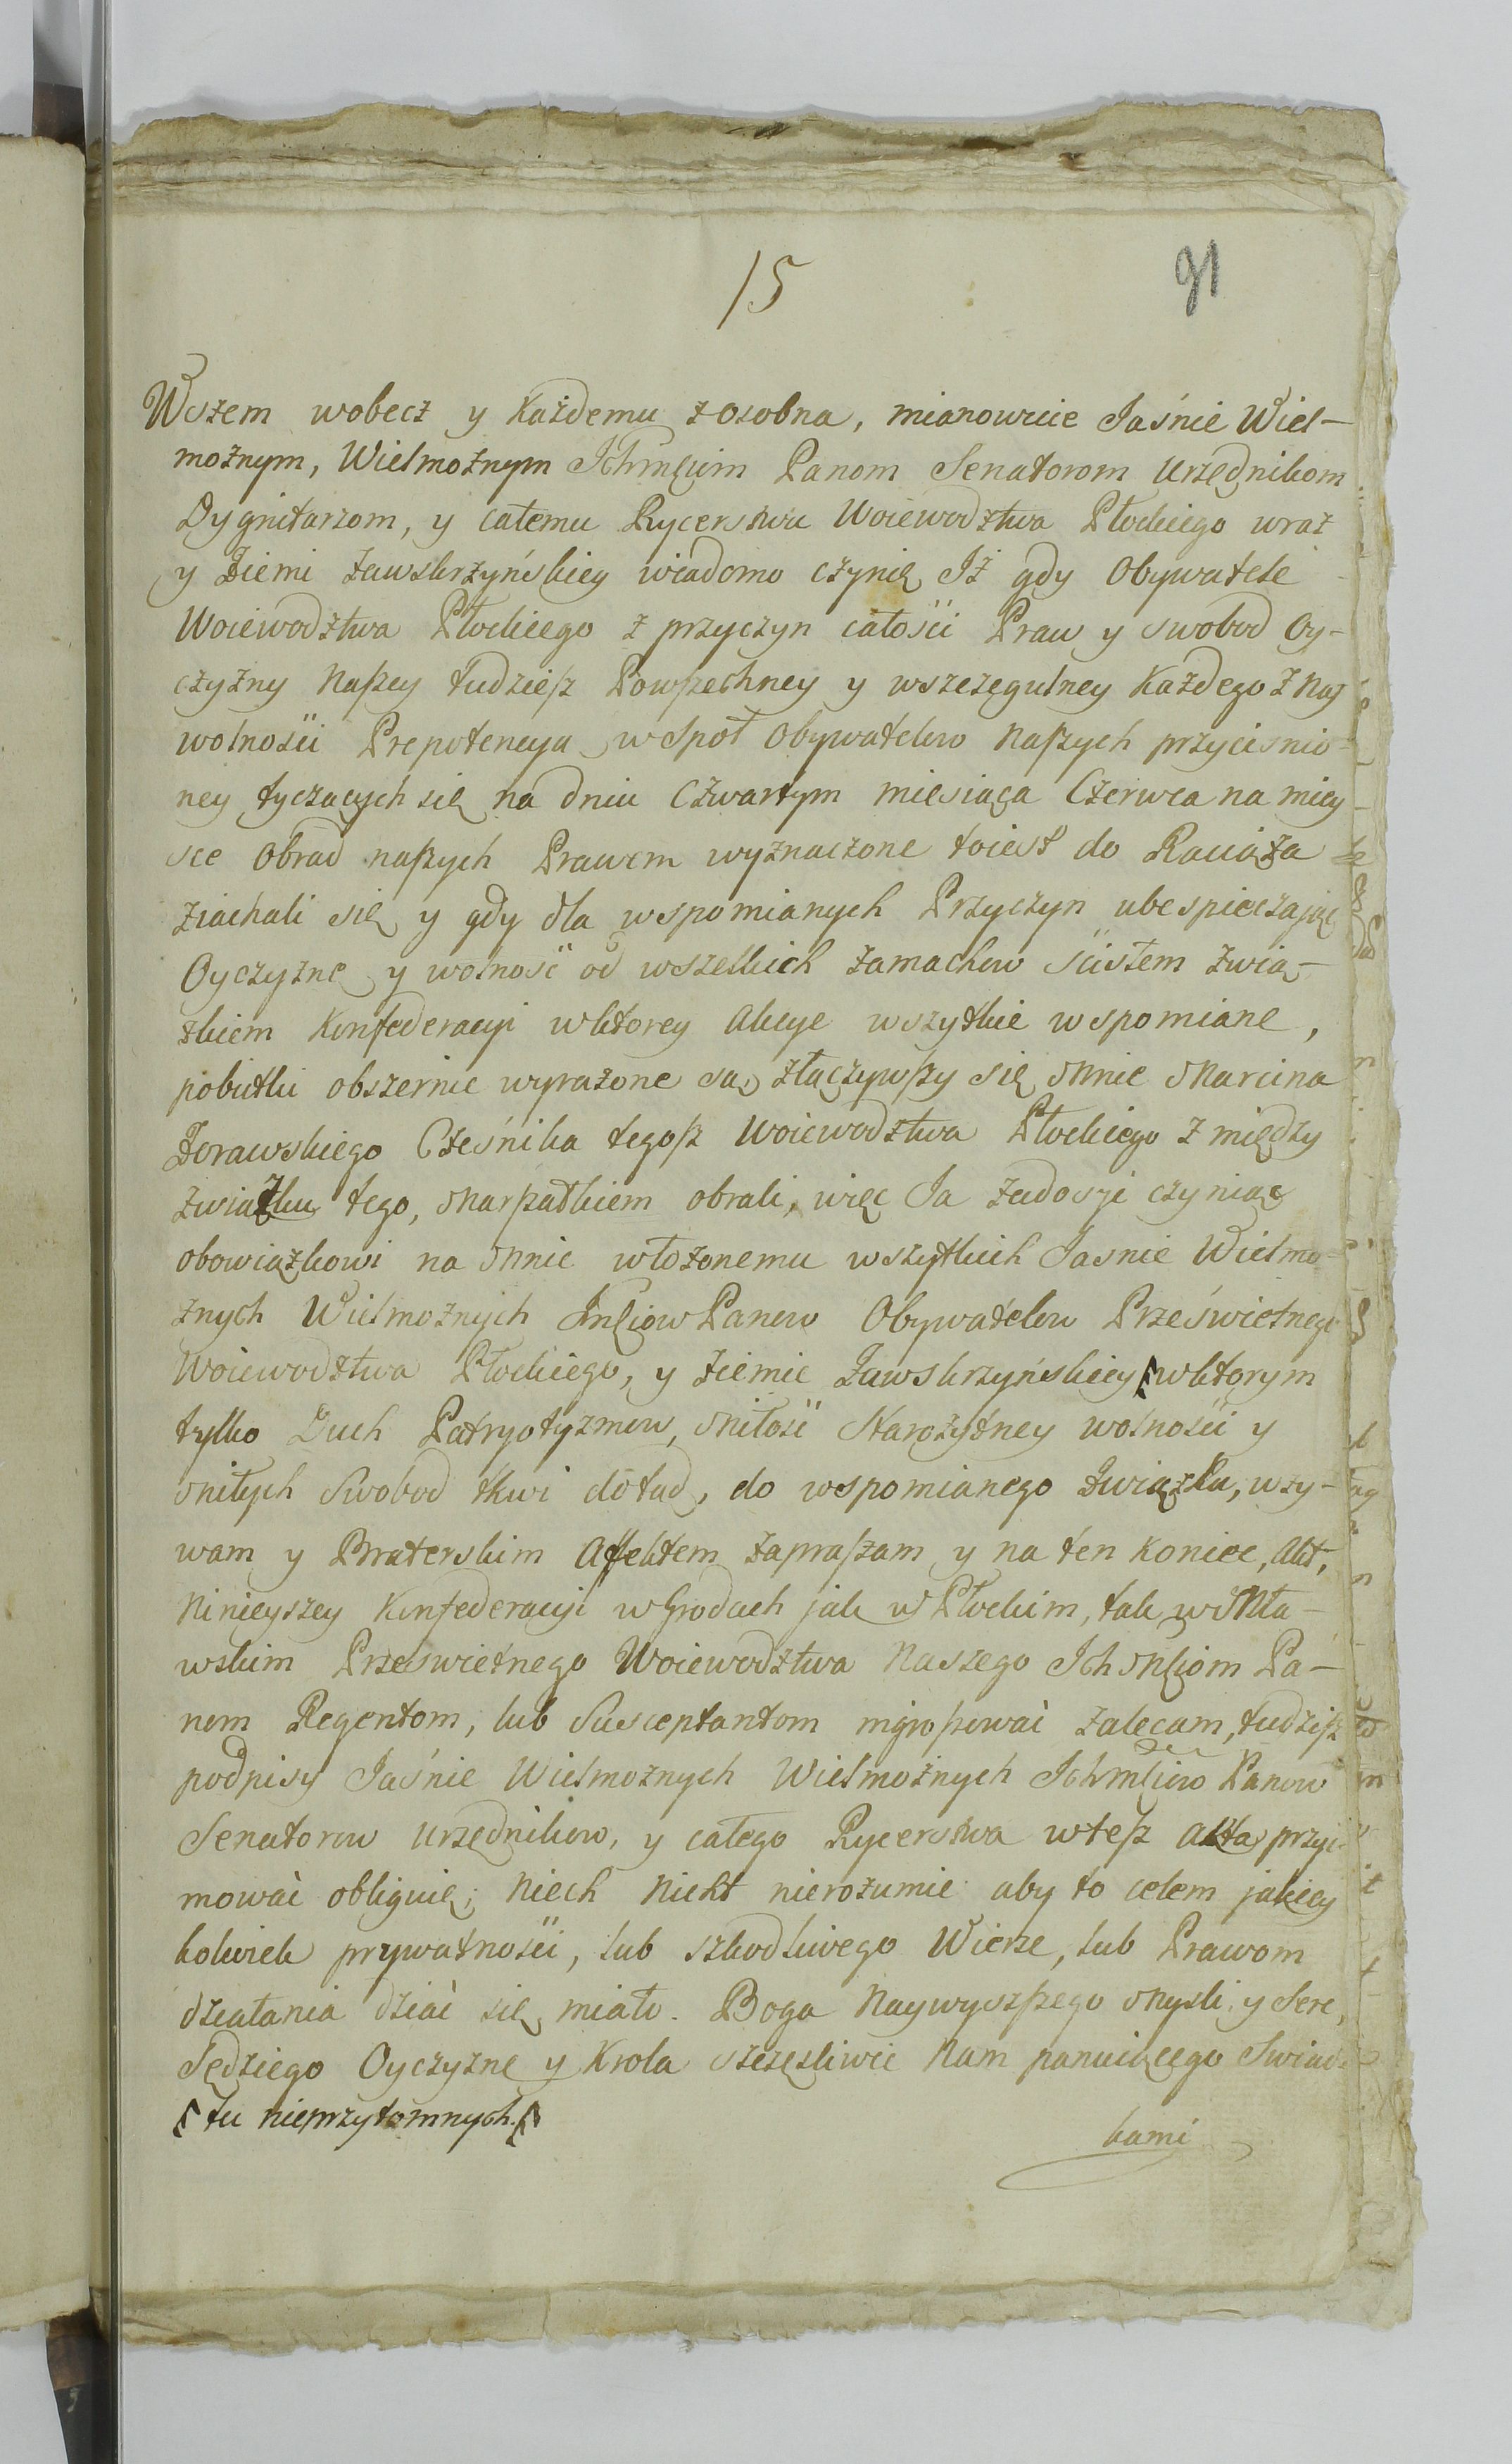 15
91
Wszem wobecz y Każdemu z osobna, mianowicie Jaśnie Wiel-
możnym, Wielmożnym Ichmćiom Panom Senatorom Urzędnikom
Dygnitarzom, y całemu Rycerstwu Woiewodztwa Płockiego wraz
y Ziemi Zawskrzyńskiey wiadomo czynię Iż gdy Obywatele
Woiewodztwa Płockiego z przyczyn całości Praw y swobod Oy-
czyzny Naszey tudziesz Powszechney y wszczegulney Każdego z Nas
wolności Prepotencya wspoł Obywatelow Naszych przyciśnio-
ney tyczących się na dniu Czwartym miesiąca Czerwca na miey
sce Obrad naszych Prawem wyznaczone toiest do Raciąża
ziachali się y gdy dla wspomianych Przyczyn ubespieczaiąc
Oyczyznę y wolność od wszelkich zamachow ścisłem zwią-
zkiem Konfederacyi wktorey Akcye wszytkie wspomiane,
pobutki obszernie wyrażone są, złączywszy się Mnie Marcina
Zorawskiego Cześnika tegosz Woiewodztwa Płockiego z między
związku tego, Marszałkiem obrali, więc Ja zadosyć czyniąc
obowiązkowi na Mnie włożonemu wszytkich Jasnie Wielmo-
żnych Wielmożnych Imćiow Panow Obywatelow Prześwietnego
Woiewodztwa Płockiego, y ziemie Zawskrzyńskiey wktorym
tylko Duch Patryotyzmow, Miłość Starożytney wolności y
Miłych Swobod tkwi dotąd, do wspomianego Związku, wzy-
wam y Braterskim Affektem zapraszam y na ten Koniec, Akt,
Ninieyszey Konfederacyi w Grodach jak w Płockim, tak w Mła-
wskim Prześwietnego Woiewodztwa Naszego Ich Mćiom Pa-
nom Regentom, lub Susceptantom ingrossować zalecam, tudziesz
podpisy Jaśnie Wielmożnych Wielmożnych Ichmćiow Panow
Senatorow Urzędnikow, y całego Rycerstwa wtesz akta przyi-
mować obliguię; Niech Nicht nierozumie aby to celem jakiey
kolwiek prywatności, lub szkodliwego Wierze, lub Prawom
działania dziać się miało. Boga Naywyższego Mysli y Serc,
Sędziego Oyczyznę y Krola szczęśliwie Nam panuiącego Swiad-
tu nieprzytomnych.
kami